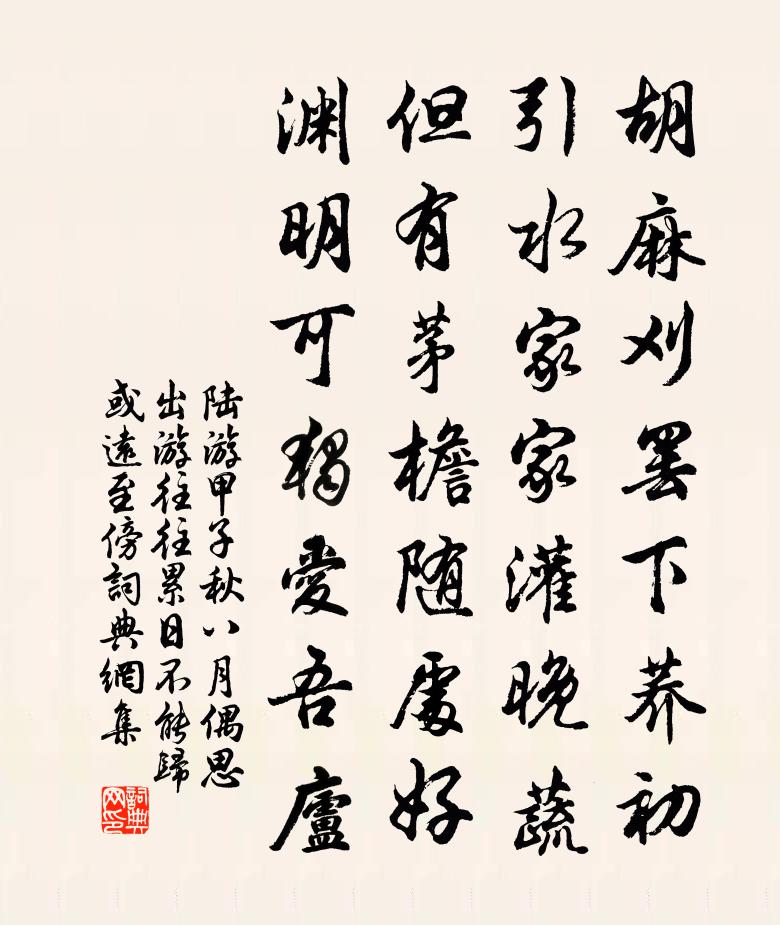 胡麻刈罢下荞初
引水家家灌晚蔬
但有茅檐随處好
渊明可独愛吾廬
陆游甲子秋八月偶思
出游往往累日不能歸
或遠至傍詞典網集
詞典网印